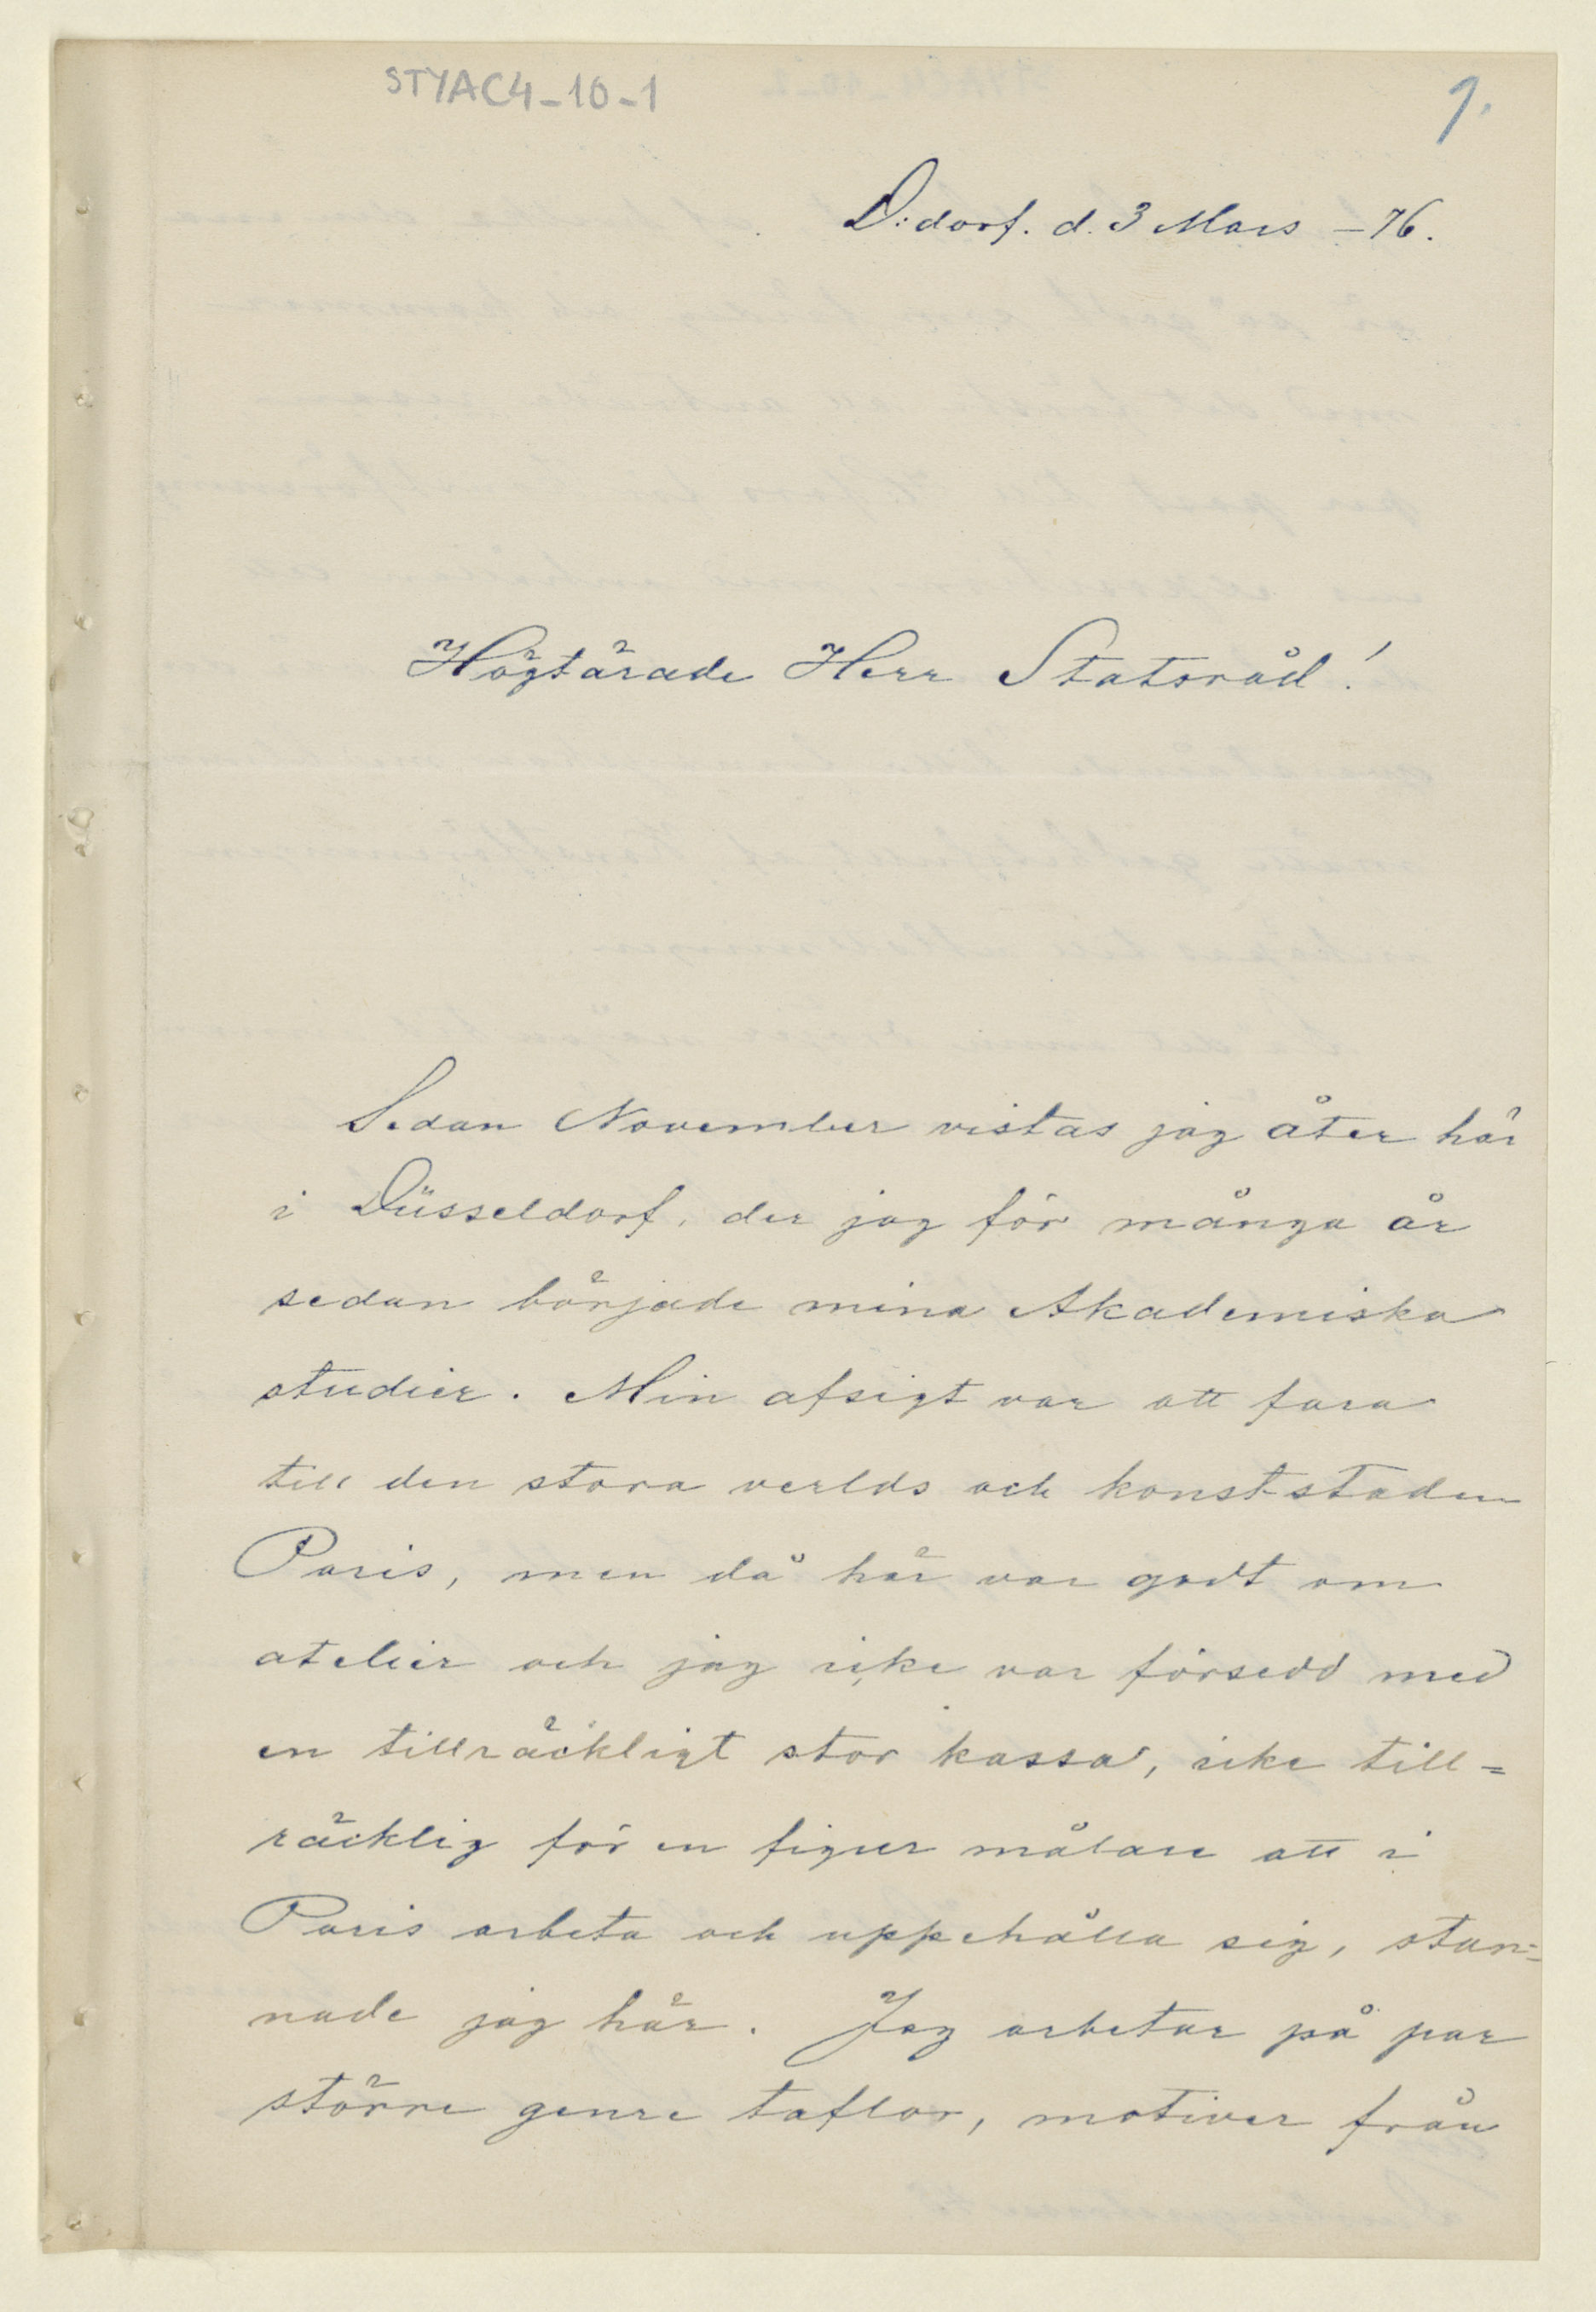 STYAC4-10-1
9.
D:dorf. d. 3 Mars -76.
Högtärade Herr Statsråd!
Sedan November vistas jag åter här
i Düsseldorf, der jag för många år
sedan började mina Akademiska
studier. Min afsigt var att fara
till den stora verlds och konst-staden
Paris, men då här var godt om
atelier och jag icke var försedd med
en tillräckligt stor kassa, icke till=
räcklig för en figur målare att i
Paris arbeta och uppehålla sig, stan=
nade jag här. Jag arbetar på par
större genre taflor, motiver från